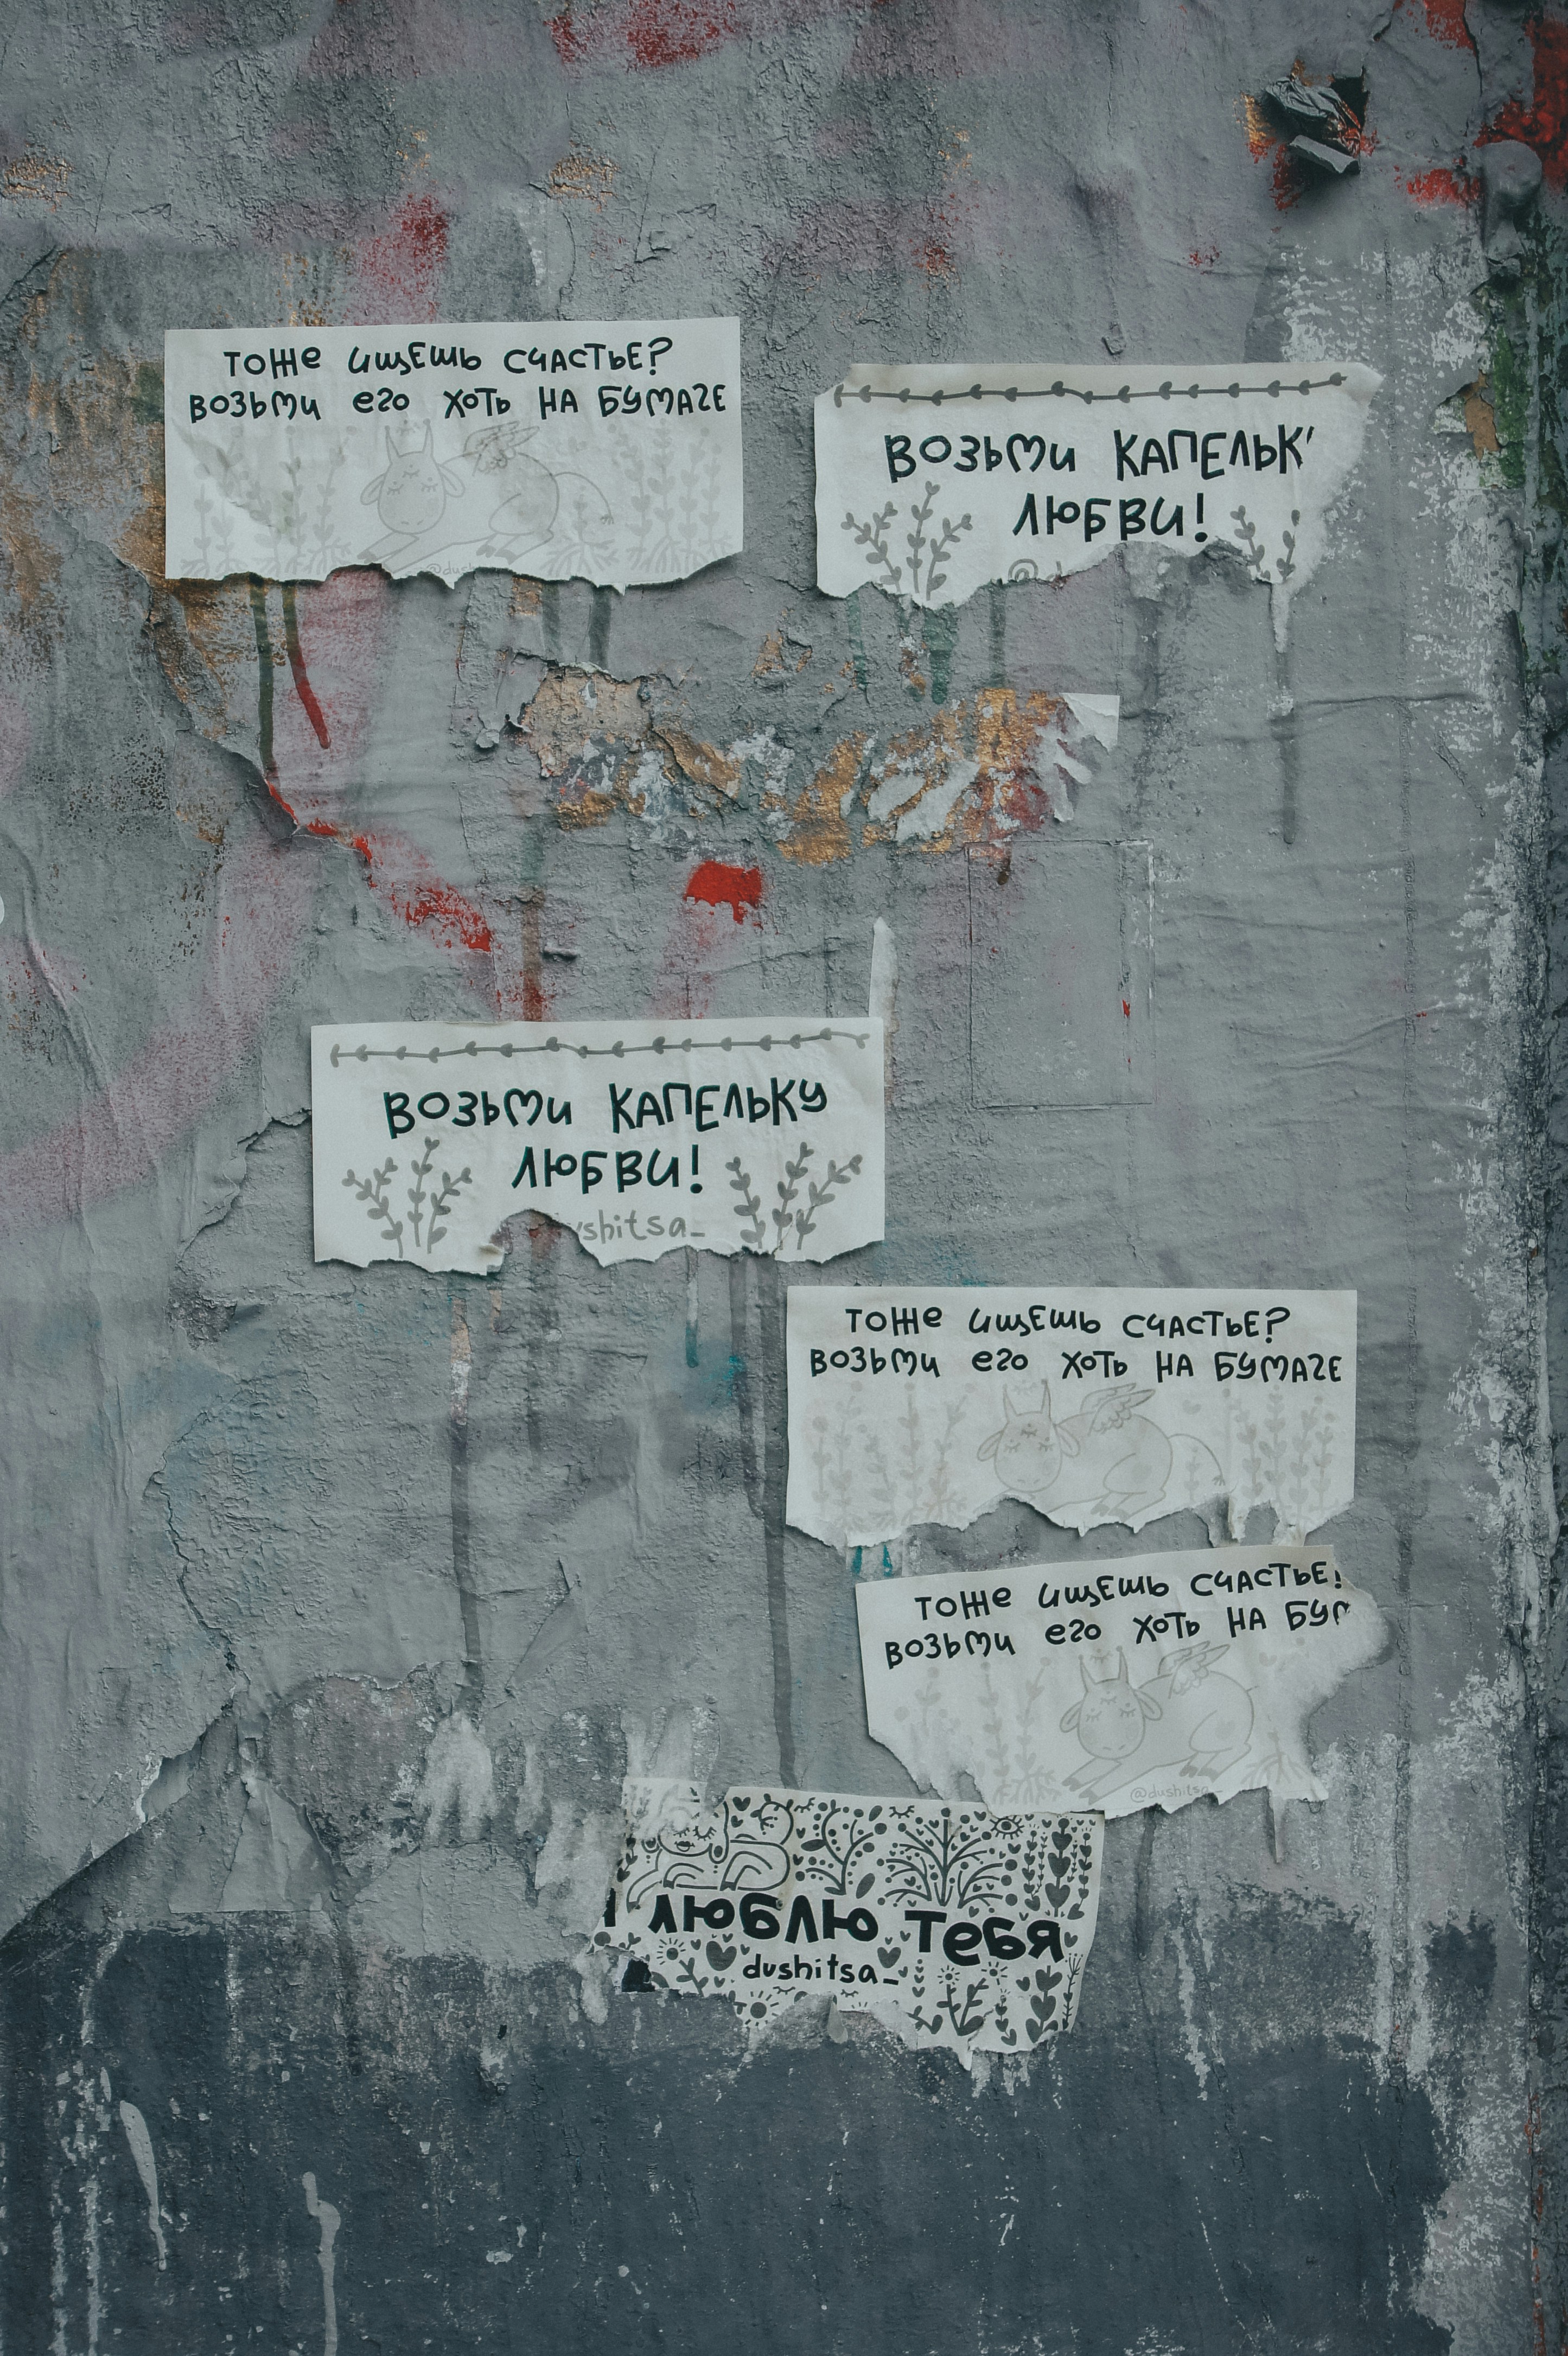 Тоже ищешь счастье?
Возьми его хоть на бумаге
Возьми
любви!
Возьми капельку
любви!
Тоже ищешь счастье?
Возьми его хоть на бумаге
Тоже ищешь счастье
Возьми его хоть на
@dushitsa_
люблю тебя
dushitsa_